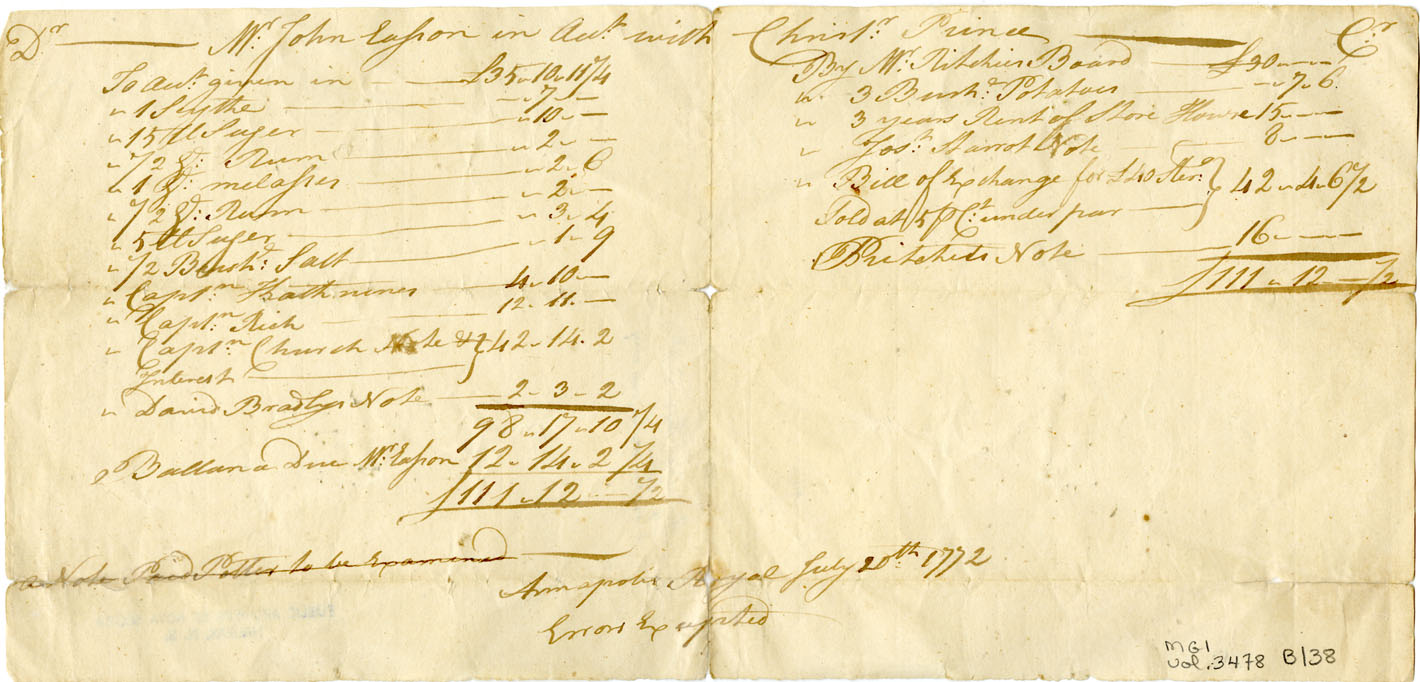 Dr Mr John Easson in Acct with Christr Prince Cr
To acct given in £35 10 11 1/4
" 1 Scythe 7 —
" 15 ll Suger 10 —
" 1/2 G: Rum 2 —
" 1 G: melasses 2 6
" 1/2 G: Rum 2 —
" 5 ll Suger 3 4
" 1/2 Bush: Salt 1 9
" Captn 4 10 —
" Captn Rich 12 11 —
" Captn Church Note & } 42 14 2
Interest
" David Bradlys Note 2 3 2
98 17 10 1/4
Ballance Due Mr Easson 12 14 2 1/4
£111 12 — 1/2
a Note Paid Potter to be Examined
By Mr Ritchies Board £30 — —
" 3 Bush: Potatoes — 7 6
" 3 years Rent of Store House 15 — —
" Jos: Starrot Note 8 — —
" Bill of Exchange for £40 Ster: } 42 4 6 1/2
Sold at 5 P Ct under par
Pritchets Note 16 — —
£111 12 — 1/2
Annapolis Royal July 20th 1772
Errors Excepted
MG1
vol. 3478 B/38